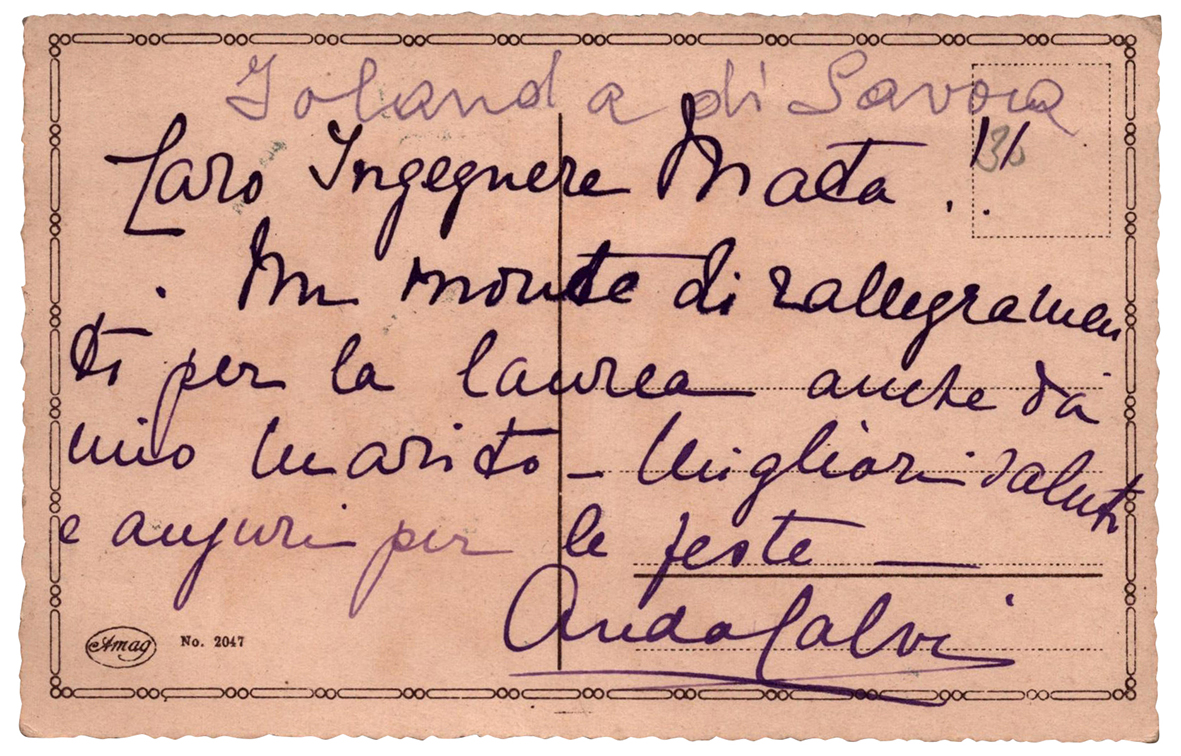 Iolanda di Savoia
Caro Ingegnere Mata
Un monte di rallegramen
ti per la laurea anche da
mio marito – Migliori saluti
e auguri per le feste —
Calvi
Amag No. 2047